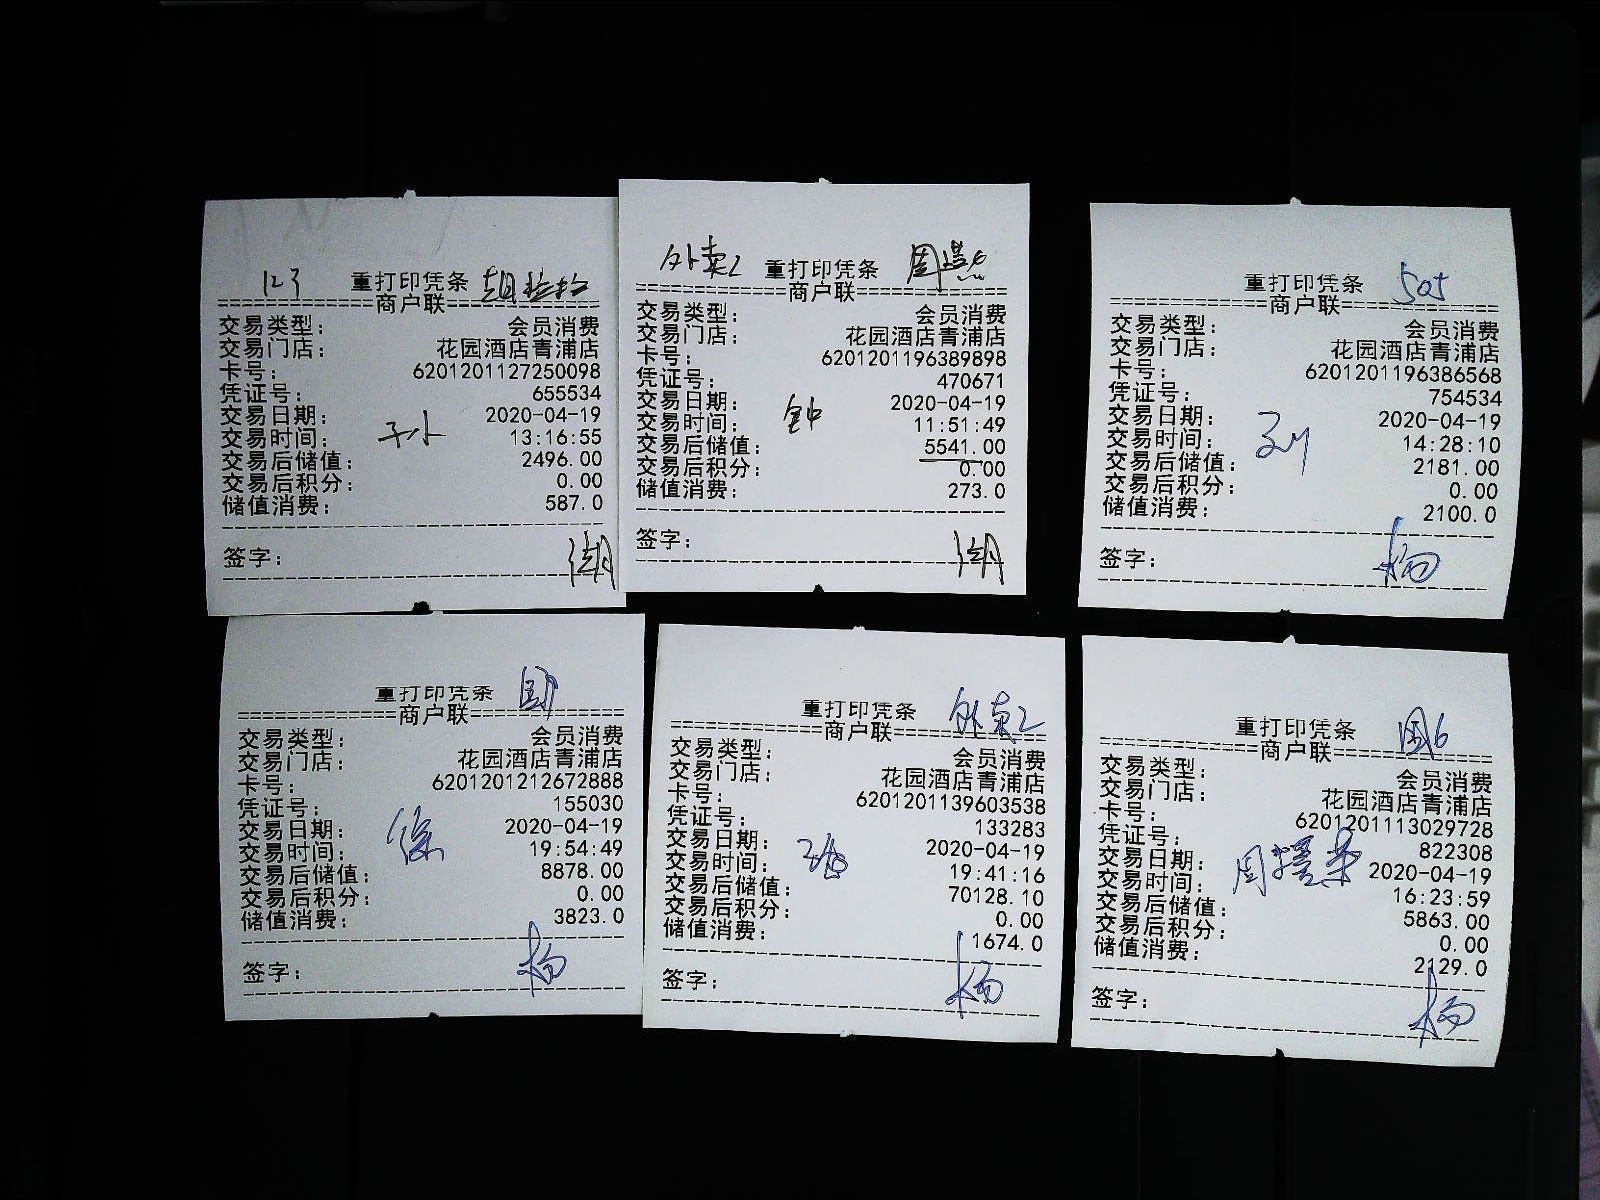 123 重打印凭条
商户联
交易类型： 会员消费
交易门店： 花园酒店青浦店
卡号： 6201201127250098
凭证号： 655534
交易日期： 2020-04-19
交易时间： 13:16:55
交易后储值： 2496.00
交易后积分： 0.00
储值消费： 587.0
签字：
外卖2 重打印凭条
商户联
交易类型： 会员消费
交易门店： 花园酒店青浦店
卡号： 6201201196389898
凭证号： 470671
交易日期： 2020-04-19
交易时间： 11:51:49
交易后储值： 5541.00
交易后积分： 0.00
储值消费： 273.0
签字：
重打印凭条 505
商户联
交易类型： 会员消费
交易门店： 花园酒店青浦店
卡号： 6201201196386568
凭证号： 754534
交易日期： 2020-04-19
交易时间： 14:28:10
交易后储值： 2181.00
交易后积分： 0.00
储值消费： 2100.0
签字： 杨
重打印凭条
商户联
交易类型： 会员消费
交易门店： 花园酒店青浦店
卡号： 6201201212672888
凭证号： 155030
交易日期： 2020-04-19
徐
交易时间： 19:54:49
交易后储值： 8878.00
交易后积分： 0.00
储值消费： 3823.0
签字： 杨
重打印凭条 外卖2
商户联
交易类型： 会员消费
交易门店： 花园酒店青浦店
卡号： 6201201139603538
凭证号： 133283
交易日期： 2020-04-19
交易时间： 19:41:16
交易后储值： 70128.10
交易后积分： 0.00
储值消费： 1674.0
签字： 杨
重打印凭条
商户联
交易类型： 会员消费
交易门店： 花园酒店青浦店
卡号： 6201201113029728
凭证号： 822308
交易日期： 2020-04-19
交易时间： 16:23:59
交易后储值： 5863.00
交易后积分： 0.00
储值消费： 2129.0
签字： 杨